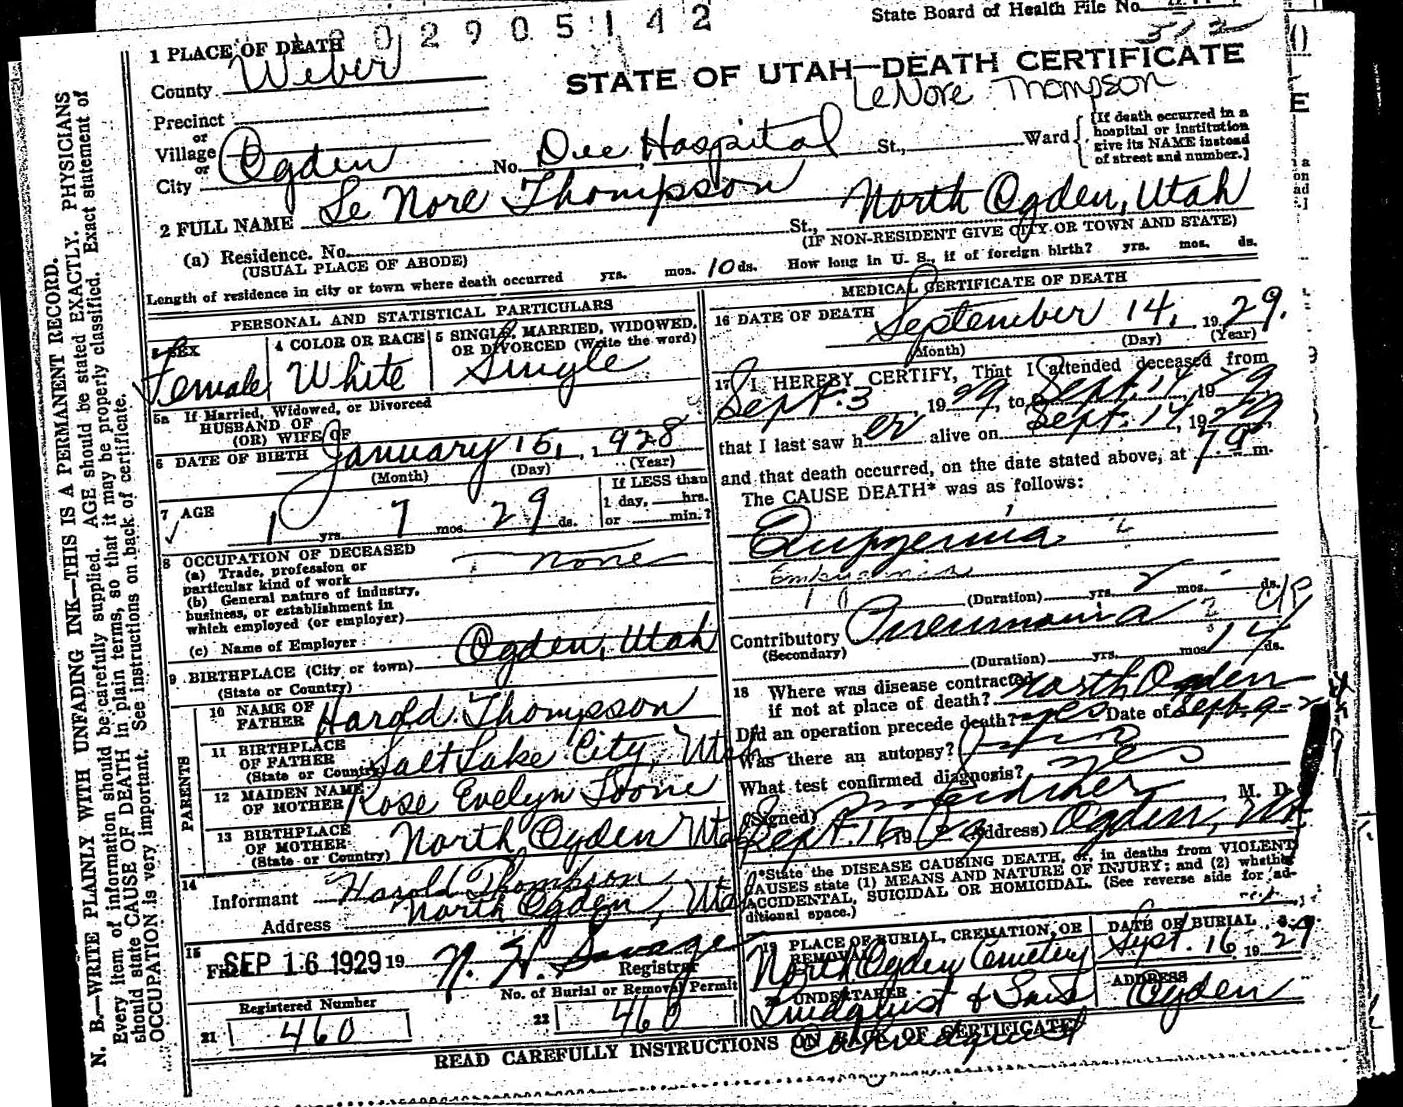 02905142
State Board of Health File No.
1 PLACE OF DEATH
County Weber
STATE OF UTAH—DEATH CERTIFICATE
LeNore Thompson
Precinct
or
Village
or
City Ogden No. Dee Hospital St., Ward
{If death occurred in a
hospital or institution
give its NAME instead
of street and number.}
2 FULL NAME Le Nore Thompson
(a) Residence. No. St., North Ogden, Utah
(USUAL PLACE OF ABODE) (IF NON-RESIDENT GIVE CITY OR TOWN AND STATE)
Length of residence in city or town where death occurred yrs. mos. 10 ds. How long in U. S., if of foreign birth? yrs. mos. ds.
PERSONAL AND STATISTICAL PARTICULARS
3 SEX
Female
4 COLOR OR RACE
White
5 SINGLE, MARRIED, WIDOWED,
OR DIVORCED (Write the word)
Single
5a If Married, Widowed, or Divorced
HUSBAND OF
(OR) WIFE OF
6 DATE OF BIRTH January 16, 1928
(Month) (Day) (Year)
7 AGE 1 yrs. 7 mos. 29 ds.
If LESS than
1 day, hrs.
or min.?
8 OCCUPATION OF DECEASED
(a) Trade, profession or
particular kind of work none
(b) General nature of industry,
business, or establishment in
which employed (or employer)
(c) Name of Employer
9 BIRTHPLACE (City or town) Ogden, Utah
(State or Country)
PARENTS
10 NAME OF
FATHER Harold Thompson
11 BIRTHPLACE
OF FATHER
(State or Country) Salt Lake City, Utah
12 MAIDEN NAME
OF MOTHER Rose Evelyn Toone
13 BIRTHPLACE
OF MOTHER
(State or Country) North Ogden Utah
14
Informant Harold Thompson
Address North Ogden, Utah
15
Filed SEP 16 1929 19 N. H. Savage
Registrar
Registered Number
21 460
No. of Burial or Removal Permit
22 460
MEDICAL CERTIFICATE OF DEATH
16 DATE OF DEATH September 14, 1929.
(Month) (Day) (Year)
17 I HEREBY CERTIFY, That I attended deceased from
Sept. 3 1929, to Sept. 14 1929
that I last saw her alive on Sept. 14, 1929,
and that death occurred, on the date stated above, at 7 a m.
The CAUSE DEATH* was as follows:
(Duration) yrs. mos. ds.
Contributory Pneumonia
(Secondary)
(Duration) yrs. mos. 14 ds.
18 Where was disease contracted
if not at place of death? North Ogden
Did an operation precede death? yes Date of Sept. 9-
Was there an autopsy?
What test confirmed diagnosis?
(Signed) M. D.
Sept. 16 1929 (Address) Ogden, Ut
*State the DISEASE CAUSING DEATH, or, in deaths from VIOLENT
CAUSES state (1) MEANS AND NATURE OF INJURY; and (2) whether
ACCIDENTAL, SUICIDAL OR HOMICIDAL. (See reverse side for additional space.)
19 PLACE OF BURIAL, CREMATION, OR
REMOVAL
North Ogden Cemetery
DATE OF BURIAL
Sept. 16 1929
20 UNDERTAKER
Lindquist & Sons
ADDRESS
Ogden
READ CAREFULLY INSTRUCTIONS ON BACK OF CERTIFICATE
N. B.—WRITE PLAINLY WITH UNFADING INK—THIS IS A PERMANENT RECORD.
Every item of information should be carefully supplied. AGE should be stated EXACTLY. PHYSICIANS
should state CAUSE OF DEATH in plain terms, so that it may be properly classified. Exact statement of
OCCUPATION is very important. See instructions on back of certificate.